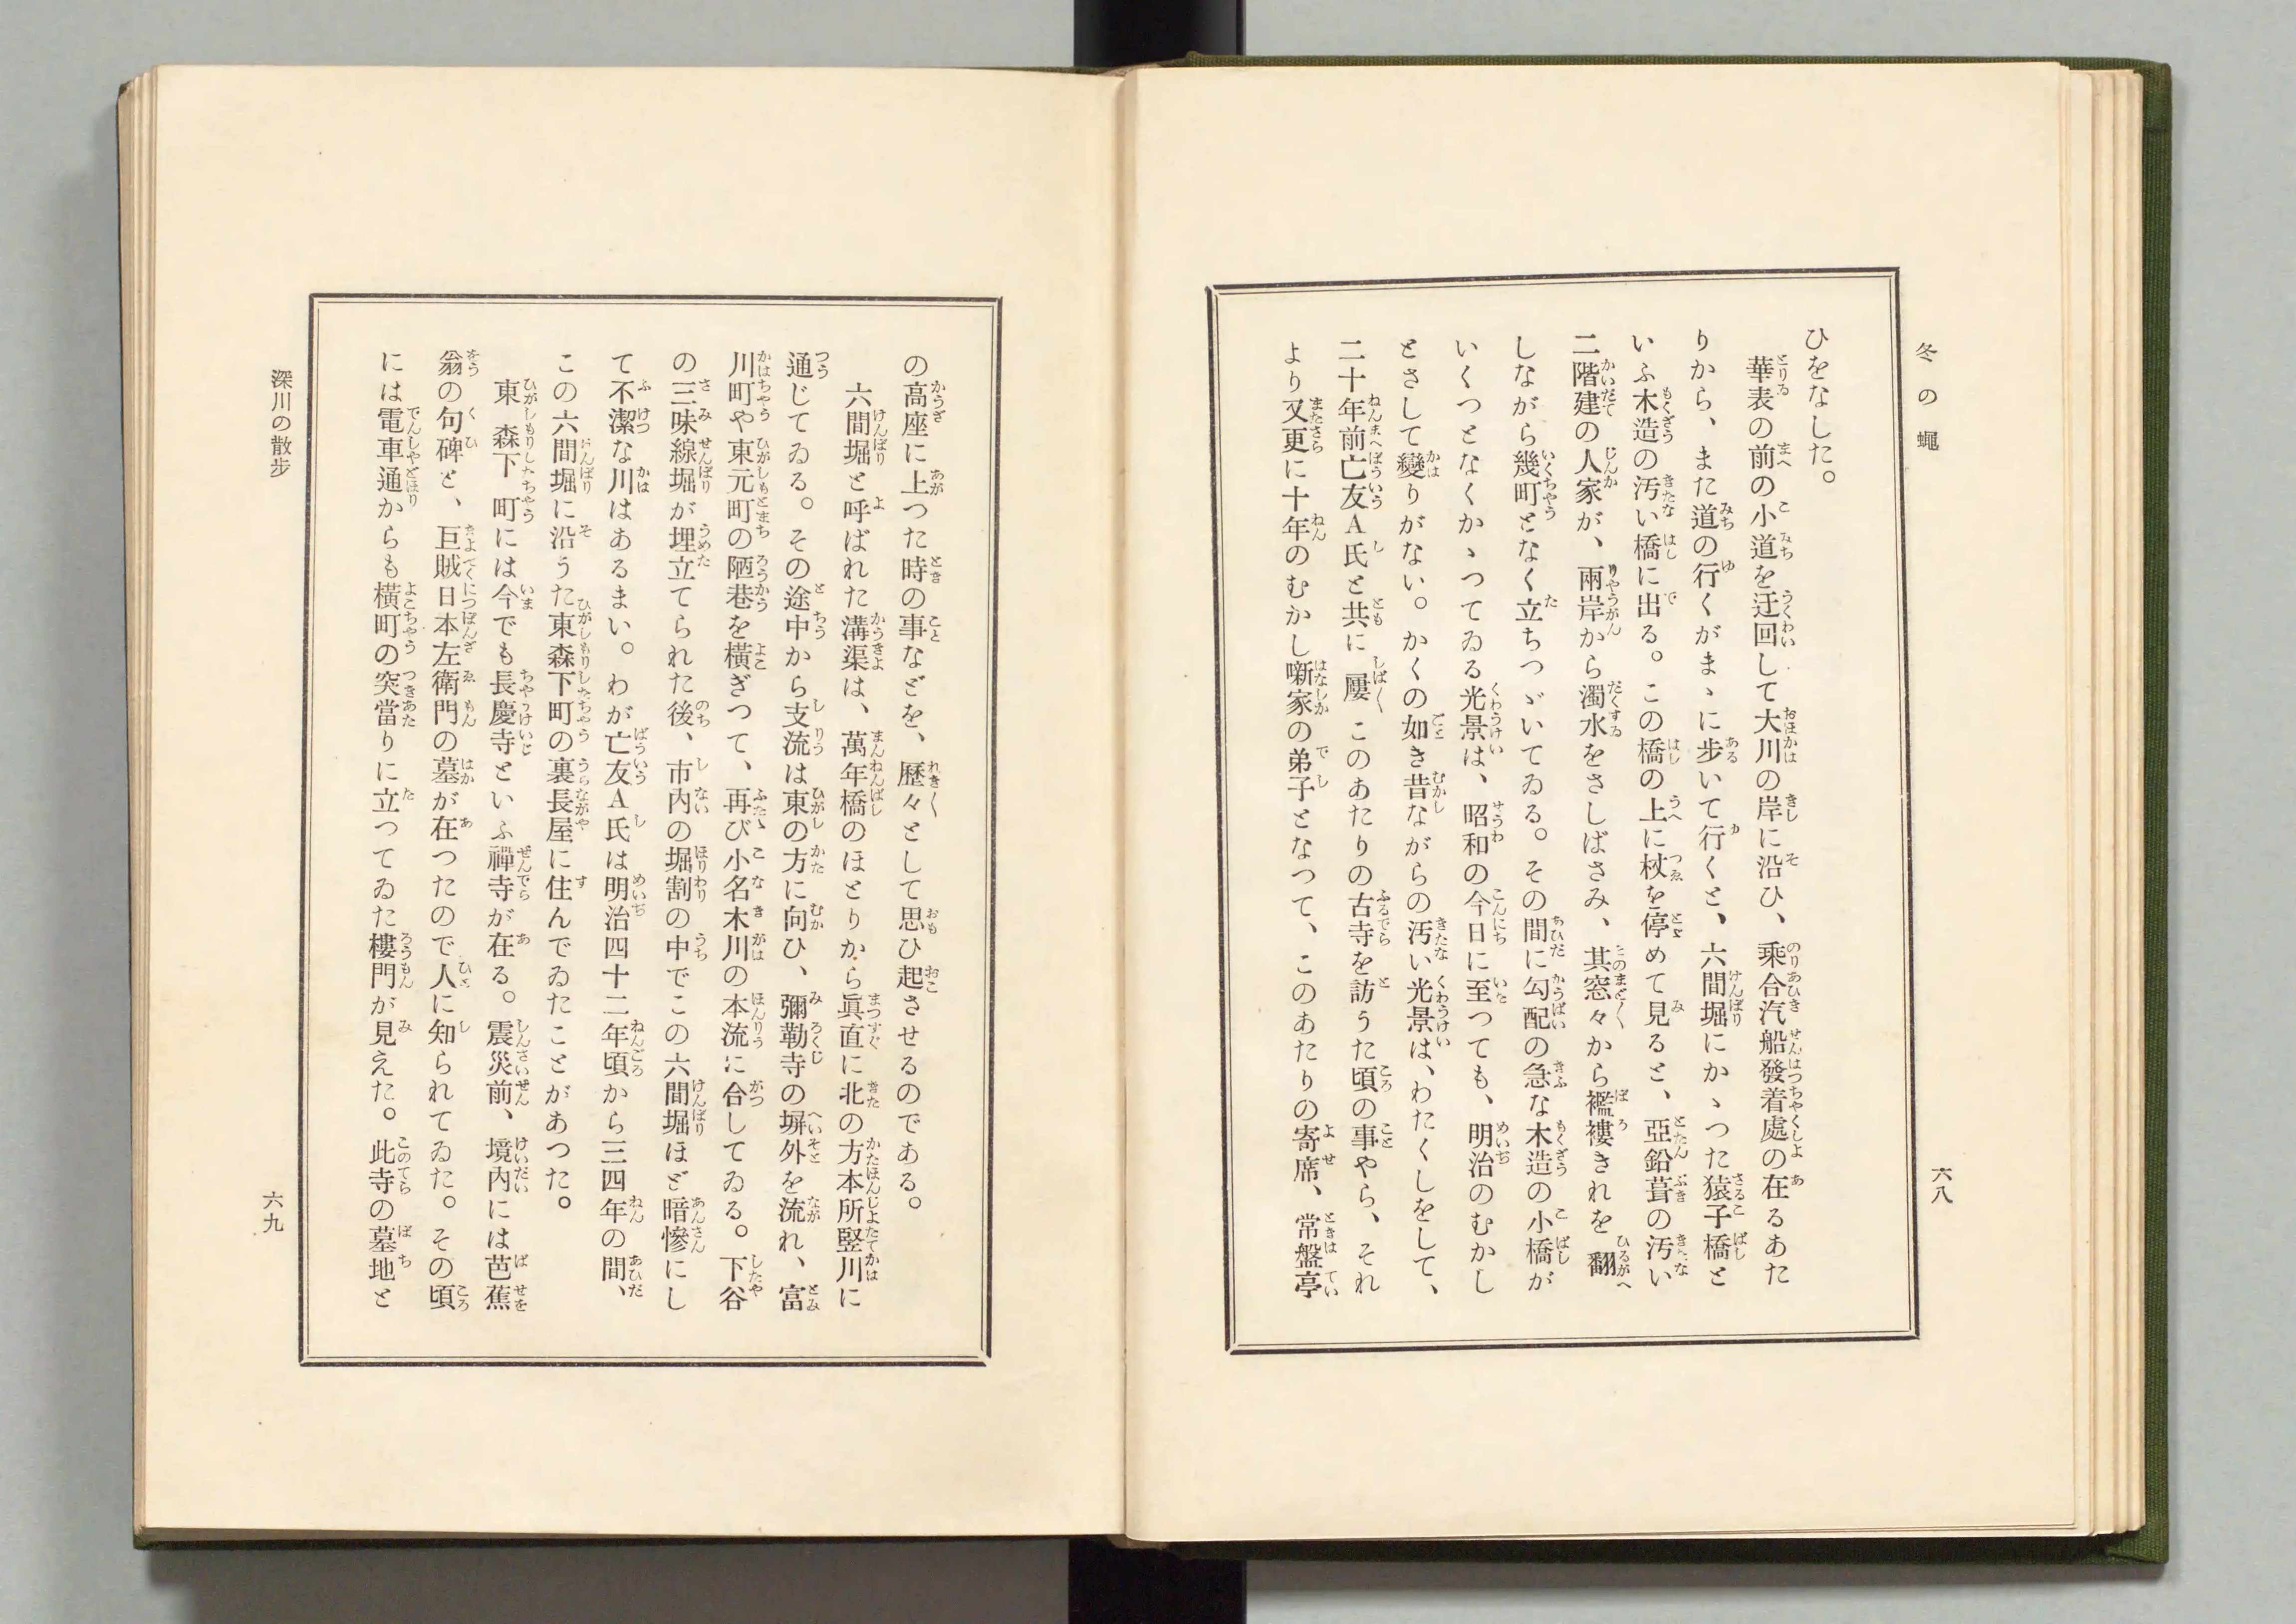 冬の蠅
六八
ひをなした。
華表の前の小道を迂回して大川の岸に沿ひ、乘合汽船發着處の在るあた
りから、また道の行くがまゝに歩いて行くと、六間堀にかゝつた猿子橋と
いふ木造の汚い橋に出る。この橋の上に杖を停めて見ると、亞鉛葺の汚い
二階建の人家が、兩岸から濁水をさしばさみ、其窓々から襤褸きれを翻
しながら幾町となく立ちつゞいてゐる。その間に勾配の急な木造の小橋が
いくつとなくかゝつてゐる光景は、昭和の今日に至つても、明治のむかし
とさして變りがない。かくの如き昔ながらの汚い光景は、わたくしをして、
二十年前亡友A氏と共に屢〻このあたりの古寺を訪うた頃の事やら、それ
より又更に十年のむかし噺家の弟子となつて、このあたりの寄席、常盤亭
の高座に上つた時の事などを、歷々として思ひ起させるのである。
六間堀と呼ばれた溝渠は、萬年橋のほとりから眞直に北の方本所竪川に
通じてゐる。その途中から支流は東の方に向ひ、彌勒寺の塀外を流れ、富
川町や東元町の陋巷を橫ぎつて、再び小名木川の本流に合してゐる。下谷
の三味線堀が埋立てられた後、市内の堀割の中でこの六間堀ほど暗慘にし
て不潔な川はあるまい。わが亡友A氏は明治四十二年頃から三四年の間、
この六間堀に沿うた東森下町の裏長屋に住んでゐたことがあつた。
東森下町には今でも長慶寺といふ禪寺が在る。震災前、境内には芭蕉
翁の句碑と、巨賊日本左衛門の墓が在つたので人に知られてゐた。その頃
には電車通からも橫町の突當りに立つてゐた樓門が見えた。此寺の墓地と
深川の散步
六九